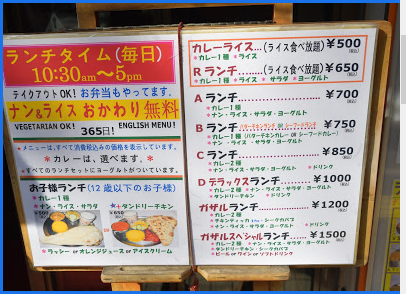 ランチタイム(毎日)
10:30am〜5pm
テイクアウトOK! お弁当もやってます。
ナン&ライス おかわり無料
VEGETARIAN OK! ENGLISH MENU!
365日!
★メニューは、すべて消費税込みの価格を表示しています。
*カレーは、選べます。*
*すべてのランチセットにヨーグルトがついています。
お子様ランチ(12歳以下のお子様)
・カレー1種
・ナン・ライス・サラダ
・タンドリーチキン
¥500
・ラッシー or オレンジジュース or アイスクリーム
カレーライス…(ライス食べ放題) ¥500
・カレー1種 ・ライス
Rランチ………(ライス食べ放題) ¥650
・カレー1種 ・ライス ・サラダ ・ヨーグルト
Aランチ ¥700
・カレー1種
・ナン・ライス・サラダ・ヨーグルト
Bランチ ¥750
・カレー1種(バターチキンカレー or シーフードカレー)
・ナン・ライス・サラダ・ヨーグルト
Cランチ ¥850
・カレー2種
・ナン・ライス・サラダ・ヨーグルト ・ドリンク
Dデラックスランチ ¥1000
・カレー2種 ・タンドリーチキン
・ナン・ライス・サラダ・ヨーグルト ・ドリンク
ガザルランチ ¥1200
・カレー2種
・チキンティッカ ・シークカバブ
・ナン・ライス・サラダ・ヨーグルト ・ドリンク
ガザルスペシャルランチ ¥1500
・カレー2種 ・ナン・ライス・サラダ・ヨーグルト
・タンドリーチキン ・シークカバブ
・ビール or ワイン or ソフトドリンク